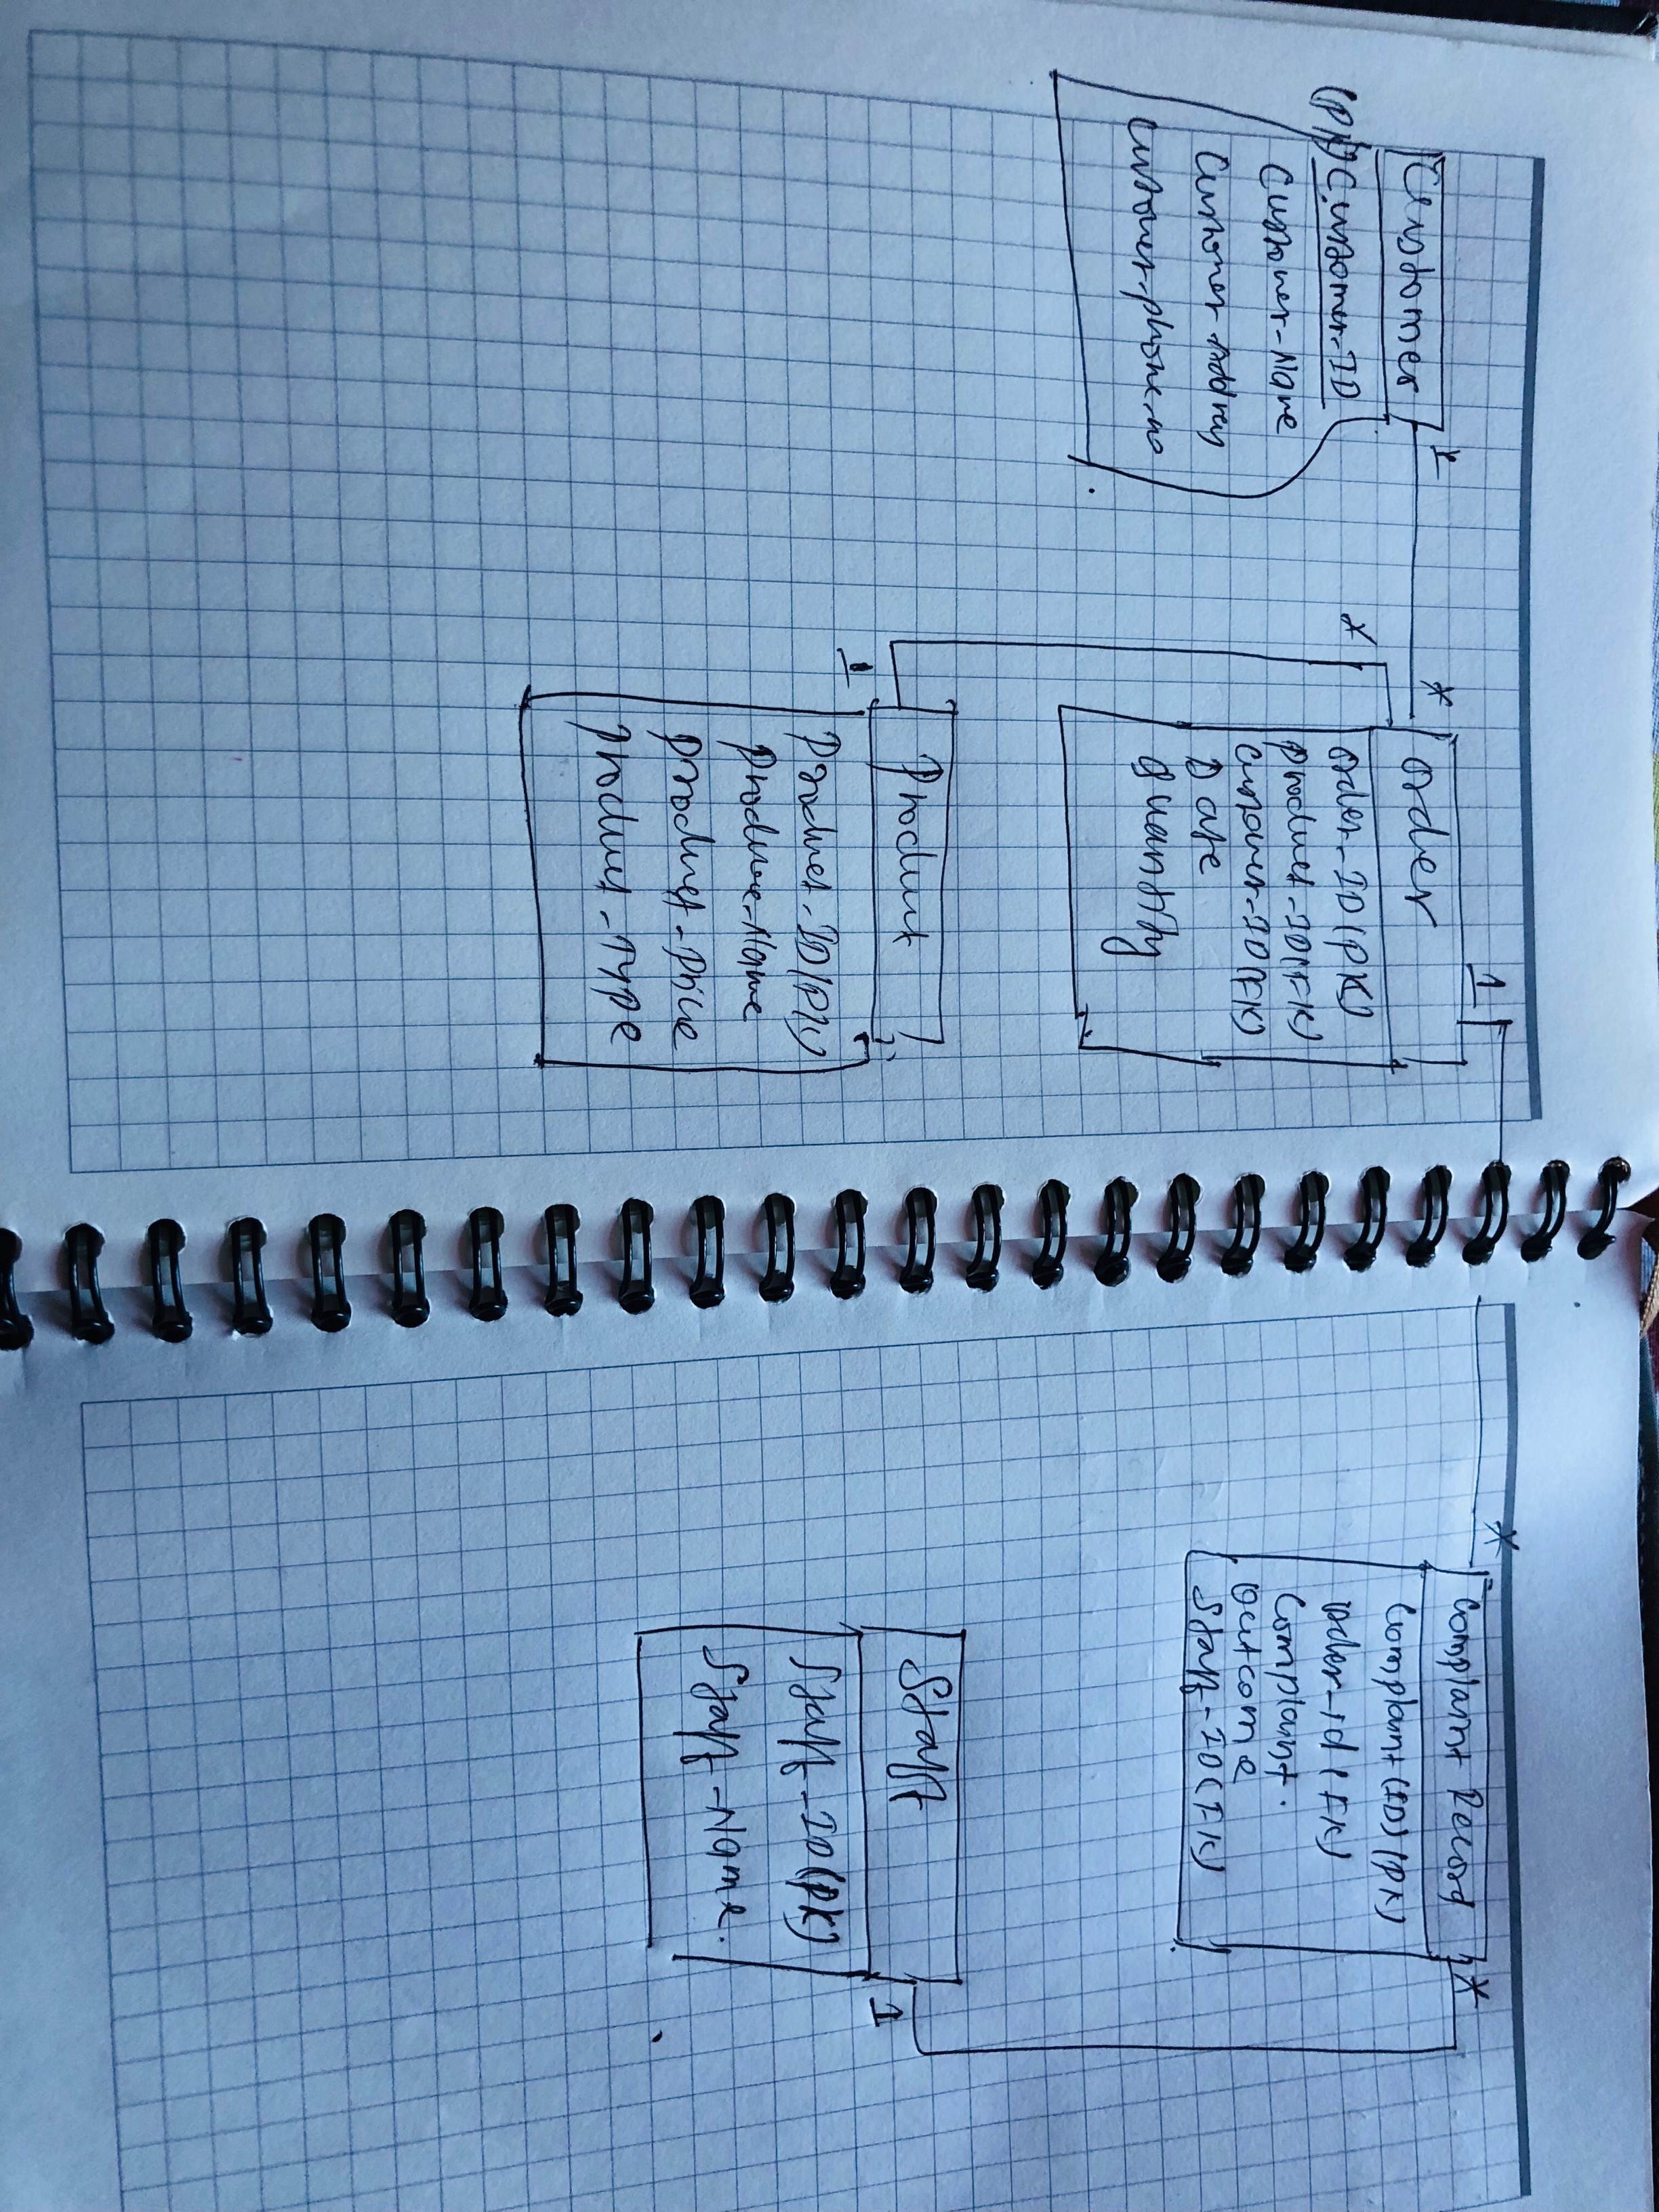 Customer
1
*
(PK) Customer-ID
Customer-Name
Customer Address
Customer-phone-no
1
order
order-ID(PK)
product-ID(FK)
customer-ID(FK)
Date
Quantity
*
1
Product
Product-ID(PK)
Product-Name
product-price
product-TYPE
*
Complaint Record
*
Complaint(ID)(PK)
order-id(FK)
Complaint.
outcome
Staff-ID(FK)
Staff
1
Staff-ID(PK)
Staff-Name.